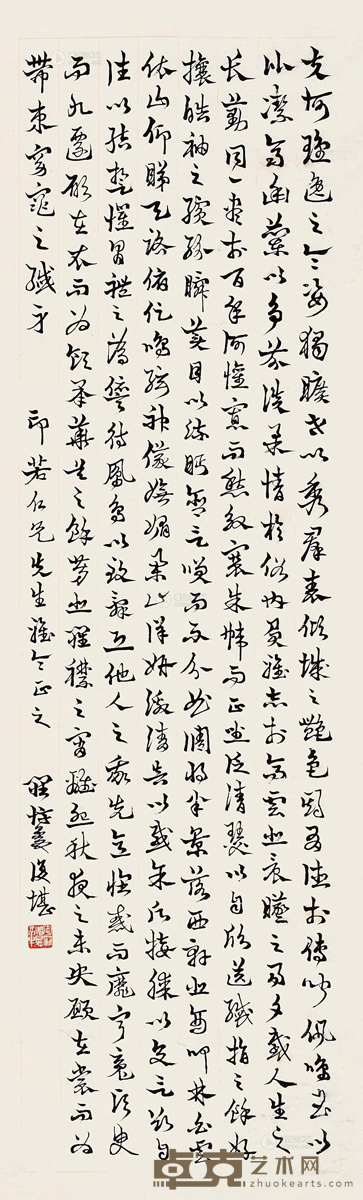 夫何瓌逸之令姿獨曠世以秀群表傾城之艷色期有德於傳聞佩鳴玉以
比潔齊幽蘭以爭芬淡柔情於俗內負雅志於高雲悲晨曦之易夕感人生之
長勤同一盡於百年何懽寡而愁殷褰朱幃而正坐泛清瑟以自欣送纖指之餘好
攘皓袖之繽紛瞬美目以流眄含言笑而不分曲調將半景落西軒悲商叩林白雲
依山仰睇天路俯促鳴弦神儀嫵媚舉止詳妍激清音以感余願接膝以交言欲自
往以結誓懼冒禮之為諐待鳳鳥以致辭恐他人之我先意惶惑而靡寧魂須臾
而九遷願在衣而為領承華首之餘芳悲羅襟之宵離怨秋夜之未央願在裳而為
帶束窈窕之纖身 印若仁兄先生雅令正之 羅惇㬊復堪
卓克艺术网
www.zhuokearts.com